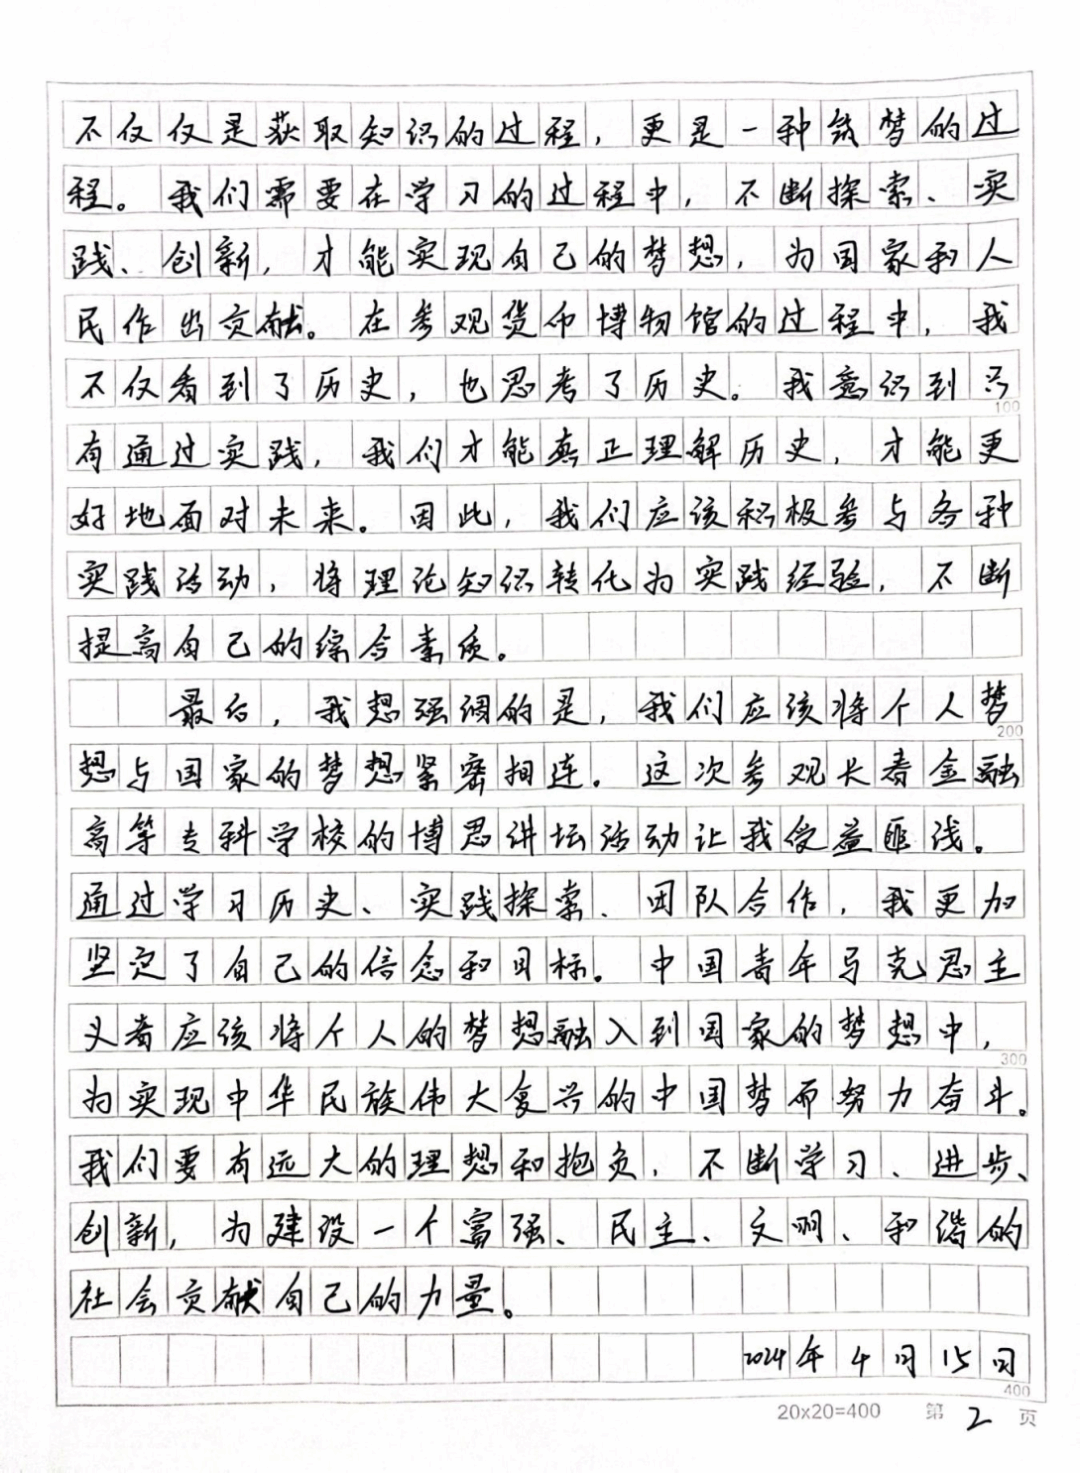 不仅仅是获取知识的过程，更是一种筑梦的过
程。我们需要在学习的过程中，不断探索、实
践、创新，才能实现自己的梦想，为国家和人
民作出贡献。在参观货币博物馆的过程中，我
不仅看到了历史，也思考了历史。我意识到只
100
有通过实践，我们才能真正理解历史，才能更
好地面对未来。因此，我们应该积极参与各种
实践活动，将理论知识转化为实践经验，不断
提高自己的综合素质。
最后，我想强调的是，我们应该将个人梦
200
想与国家的梦想紧密相连。这次参观长春金融
高等专科学校的博思讲坛活动让我受益匪浅。
通过学习历史、实践探索、团队合作，我更加
坚定了自己的信念和目标。中国青年马克思主
义者应该将个人的梦想融入到国家的梦想中，
300
为实现中华民族伟大复兴的中国梦而努力奋斗。
我们要有远大的理想和抱负，不断学习、进步、
创新，为建设一个富强、民主、文明、和谐的
社会贡献自己的力量。
2024年4月15日
400
20x20=400 第2页